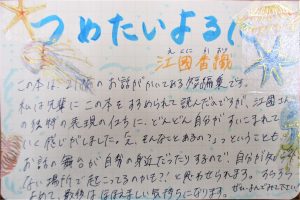 つめたいよるに
えくに かおり
江國香織
この本は、21個のお話がかいてある短編集です。
私は先輩にこの本をすすめられて読んだんですが、江國さん
の独特の表現の仕方に、どんどん自分がすいこまれて
いく感じがしました。「え、そんなことあるの？」っということも
お話の舞台が自分の身近だったりするので、自分が知ら
ない場所で起こってるのかも？！と思わせられます。
よめて、最後はほほえましい気持ちになります。
ぜひよんでみて下さい